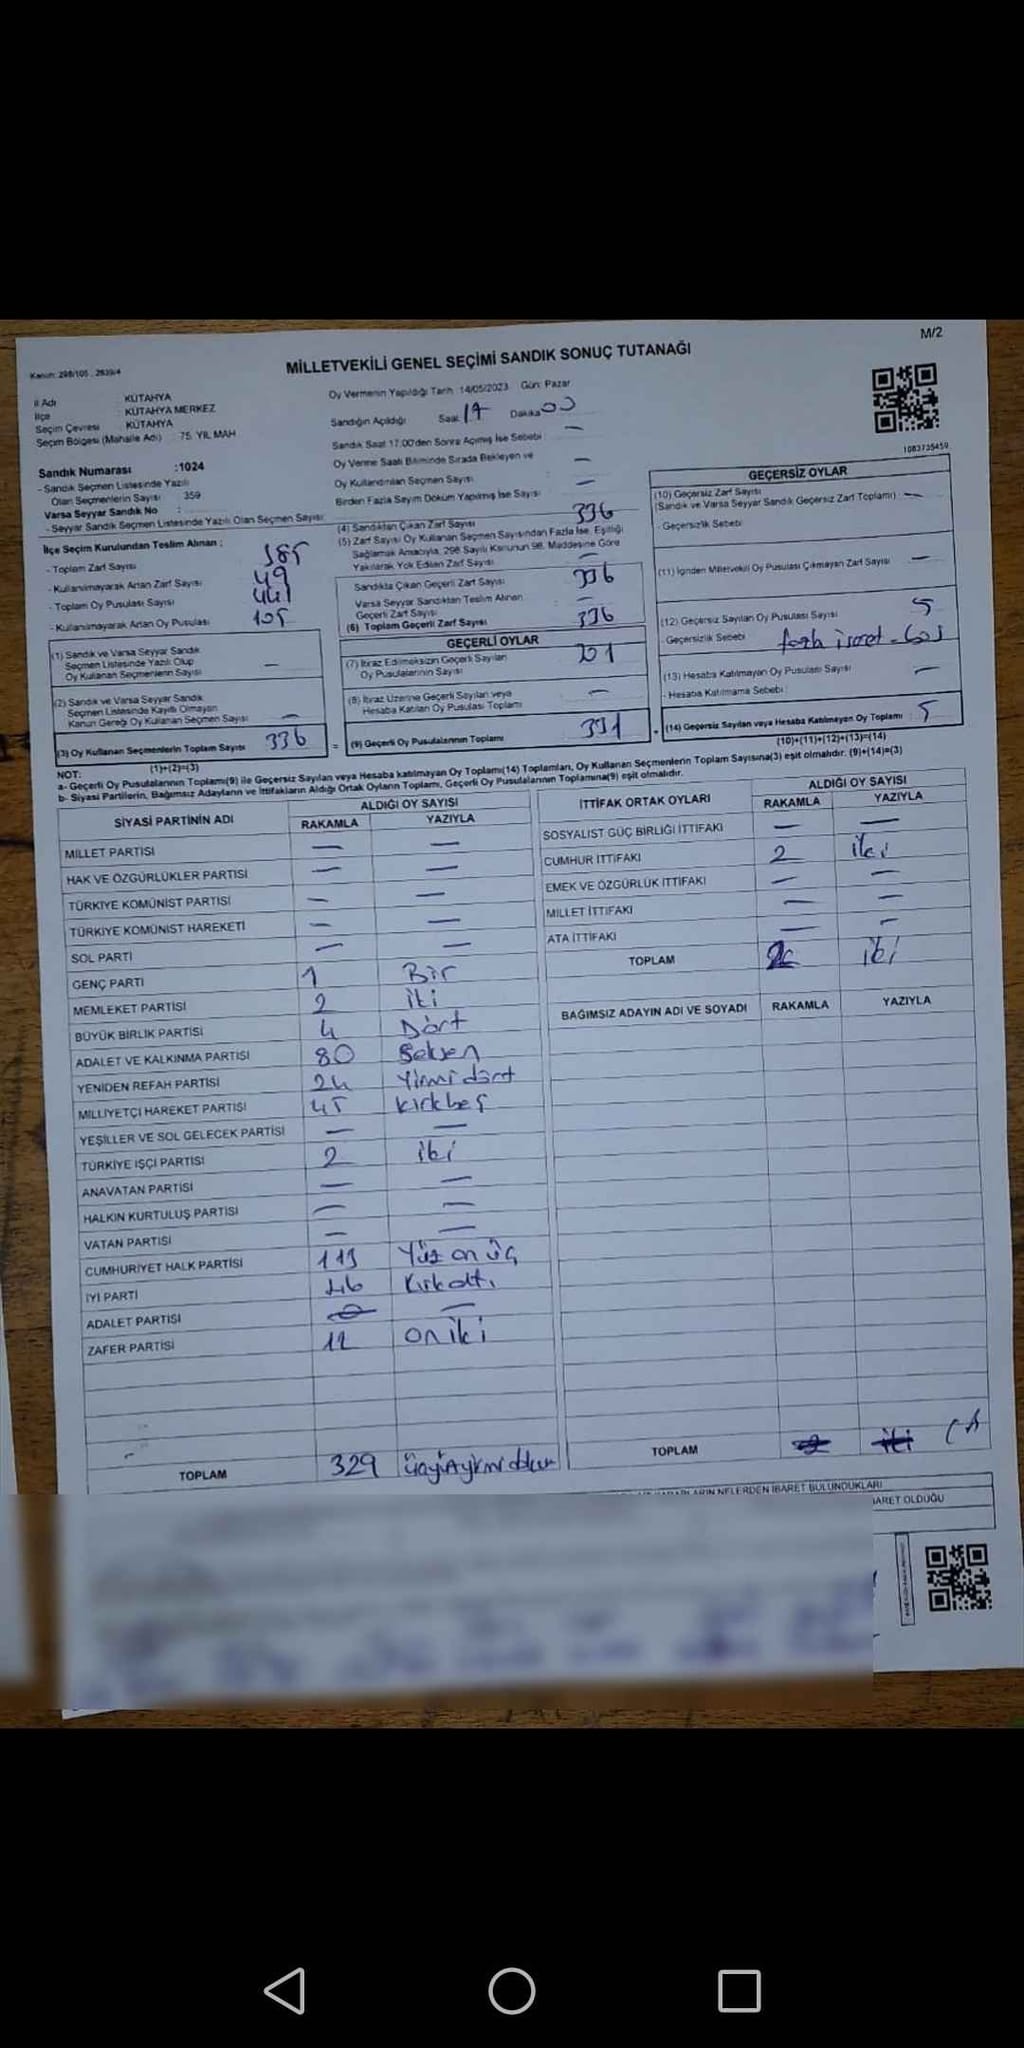 M/2
Kanun: 298/105 , 2839/4
MİLLETVEKİLİ GENEL SEÇİMİ SANDIK SONUÇ TUTANAĞI
İl Adı : KÜTAHYA
İlçe : KÜTAHYA MERKEZ
Seçim Çevresi : KÜTAHYA
Seçim Bölgesi (Mahalle Adı) : 75. YIL MAH
Oy Vermenin Yapıldığı Tarih :14/05/2023 Gün: Pazar
Sandığın Açıldığı Saat 17 Dakika 00
Sandık Saat 17:00'den Sonra Açılmış İse Sebebi : —
Oy Verme Saati Bitiminde Sırada Bekleyen ve
Oy Kullandırılan Seçmen Sayısı : —
Birden Fazla Sayım Döküm Yapılmış İse Sayısı : —
1083735459
Sandık Numarası :1024
- Sandık Seçmen Listesinde Yazılı
Olan Seçmenlerin Sayısı : 359
Varsa Seyyar Sandık No :
- Seyyar Sandık Seçmen Listesinde Yazılı Olan Seçmen Sayısı:
İlçe Seçim Kurulundan Teslim Alınan :
- Toplam Zarf Sayısı 385
- Kullanılmayarak Artan Zarf Sayısı 49
- Toplam Oy Pusulası Sayısı 441
- Kullanılmayarak Artan Oy Pusulası 105
(1) Sandık ve Varsa Seyyar Sandık
Seçmen Listesinde Yazılı Olup
Oy Kullanan Seçmenlerin Sayısı —
(2) Sandık ve Varsa Seyyar Sandık
Seçmen Listesinde Kayıtlı Olmayan
Kanun Gereği Oy Kullanan Seçmen Sayısı —
(3) Oy Kullanan Seçmenlerin Toplam Sayısı 336
(1)+(2)=(3)
(4) Sandıktan Çıkan Zarf Sayısı 336
(5) Zarf Sayısı Oy Kullanan Seçmen Sayısından Fazla İse, Eşitliği
Sağlamak Amacıyla, 298 Sayılı Kanunun 98. Maddesine Göre
Yakılarak Yok Edilen Zarf Sayısı —
Sandıkta Çıkan Geçerli Zarf Sayısı 336
Varsa Seyyar Sandıktan Teslim Alınan
Geçerli Zarf Sayısı : —
(6) Toplam Geçerli Zarf Sayısı 336
GEÇERLİ OYLAR
(7) İtiraz Edilmeksizin Geçerli Sayılan
Oy Pusulalarının Sayısı
(8) İtiraz Üzerine Geçerli Sayılan veya
Hesaba Katılan Oy Pusulası Toplamı —
= (9) Geçerli Oy Pusulalarının Toplamı 331
GEÇERSİZ OYLAR
(10) Geçersiz Zarf Sayısı
(Sandık ve Varsa Seyyar Sandık Geçersiz Zarf Toplamı) : —
- Geçersizlik Sebebi
(11) İçinden Milletvekili Oy Pusulası Çıkmayan Zarf Sayısı —
(12) Geçersiz Sayılan Oy Pusulası Sayısı 5
Geçersizlik Sebebi fazla işaret - boş
(13) Hesaba Katılmayan Oy Pusulası Sayısı —
- Hesaba Katılmama Sebebi :
(14) Geçersiz Sayılan veya Hesaba Katılmayan Oy Toplamı 5
(10)+(11)+(12)+(13)=(14)
NOT:
a- Geçerli Oy Pusulalarının Toplamı(9) ile Geçersiz Sayılan veya Hesaba katılmayan Oy Toplamı(14) Toplamları, Oy Kullanan Seçmenlerin Toplam Sayısına(3) eşit olmalıdır. (9)+(14)=(3)
b- Siyasi Partilerin, Bağımsız Adayların ve İttifakların Aldığı Ortak Oyların Toplamı, Geçerli Oy Pusulalarının Toplamına(9) eşit olmalıdır.
SİYASİ PARTİNİN ADI ALDIĞI OY SAYISI
RAKAMLA YAZIYLA
MİLLET PARTİSİ — —
HAK VE ÖZGÜRLÜKLER PARTİSİ — —
TÜRKİYE KOMÜNİST PARTİSİ — —
TÜRKİYE KOMÜNİST HAREKETİ — —
SOL PARTİ — —
GENÇ PARTİ 1 Bir
MEMLEKET PARTİSİ 2 iki
BÜYÜK BİRLİK PARTİSİ 4 Dört
ADALET VE KALKINMA PARTİSİ 80 Seksen
YENİDEN REFAH PARTİSİ 24 Yirmi dört
MİLLİYETÇİ HAREKET PARTİSİ 45 kırkbeş
YEŞİLLER VE SOL GELECEK PARTİSİ — —
TÜRKİYE İŞÇİ PARTİSİ 2 iki
ANAVATAN PARTİSİ — —
HALKIN KURTULUŞ PARTİSİ — —
VATAN PARTİSİ — —
CUMHURİYET HALK PARTİSİ 113 Yüz on üç
İYİ PARTİ 46 Kırkaltı
ADALET PARTİSİ —
ZAFER PARTİSİ 12 on iki
TOPLAM 329
İTTİFAK ORTAK OYLARI ALDIĞI OY SAYISI
RAKAMLA YAZIYLA
SOSYALİST GÜÇ BİRLİĞİ İTTİFAKI — —
CUMHUR İTTİFAKI 2 iki
EMEK VE ÖZGÜRLÜK İTTİFAKI — —
MİLLET İTTİFAKI — —
ATA İTTİFAKI — —
TOPLAM 2 iki
BAĞIMSIZ ADAYIN ADI VE SOYADI RAKAMLA YAZIYLA
TOPLAM 2 iki
NELERDEN İBARET BULUNDUKLARI
OLDUĞU